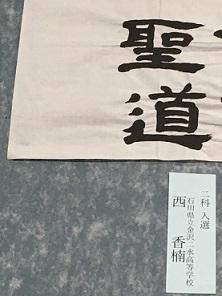 聖道
二科 入選
石川県立金沢二水高等学校
西 香楠